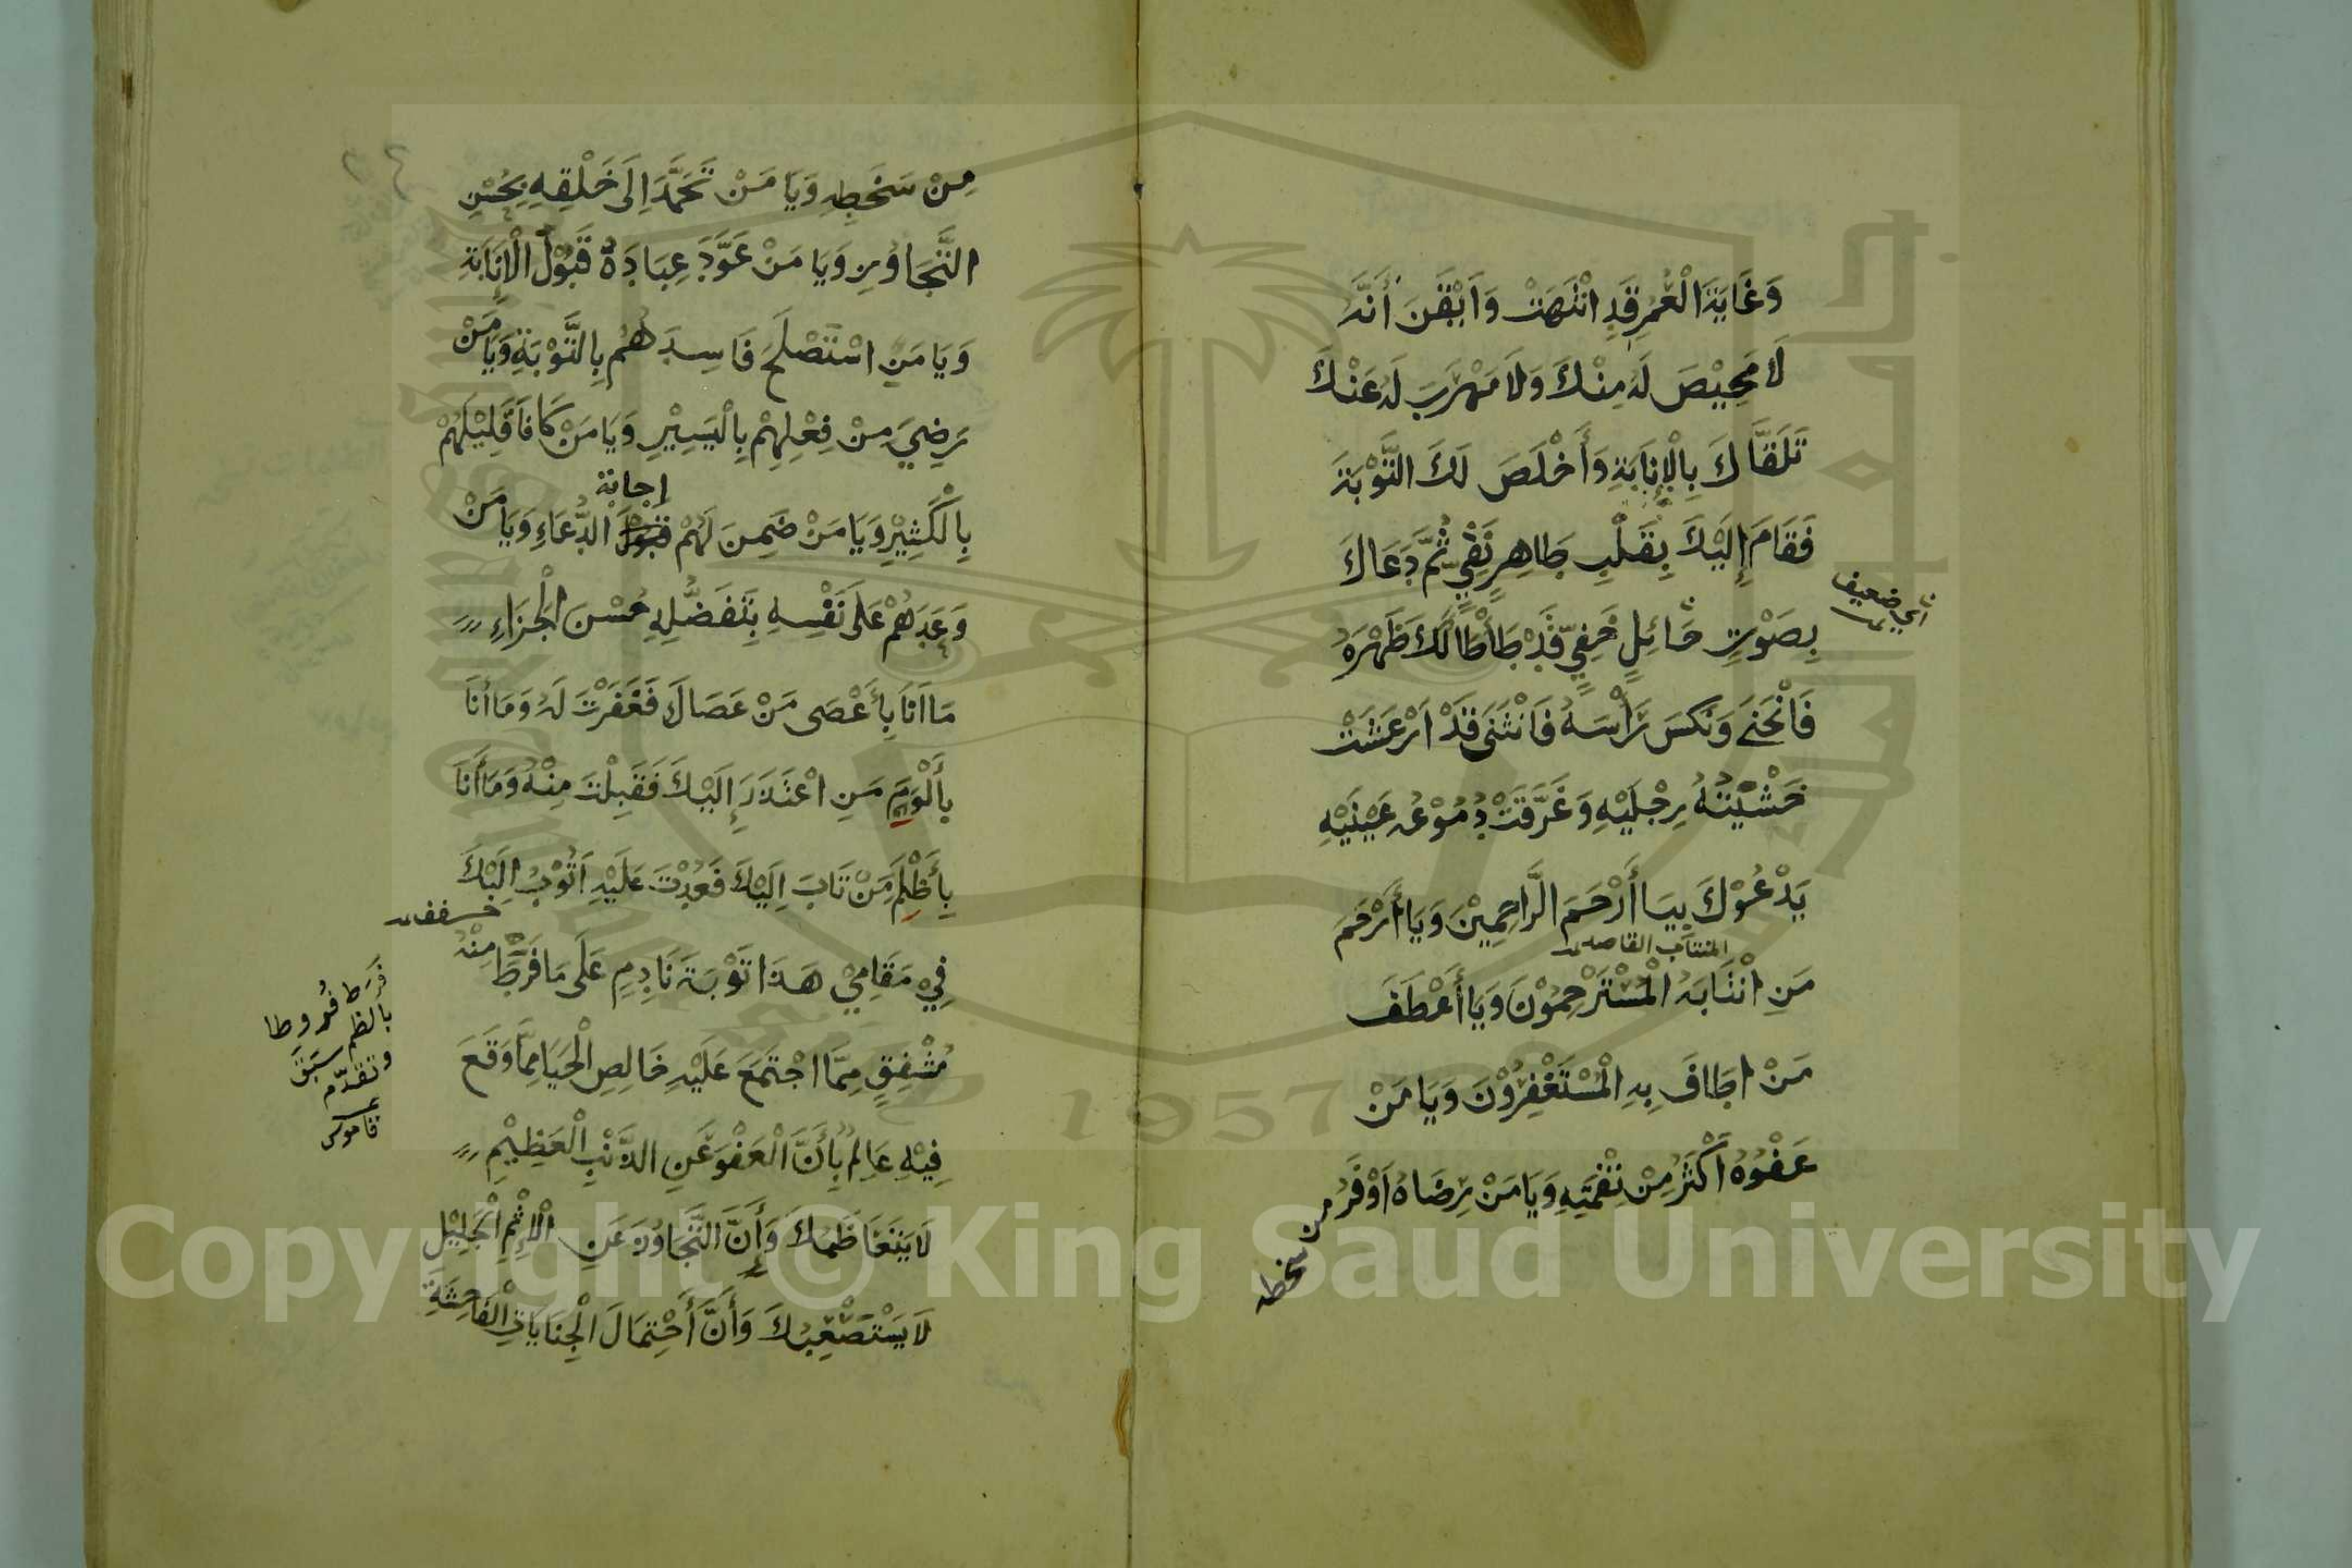 وَغَايَةَ الْعُمُرِ قَدِ انْتَهَتْ وَاَيْقَنَ أَنَّهُ
لَا مَحِيْصَ لَهُ مِنْكَ وَلَا مَهْرَبَ لَهُ عَنْكَ
تَلَقَّاكَ بِالْإِنَابَةِ وَأَخْلَصَ لَكَ التَّوْبَةَ
فَقَامَ إِلَيْكَ بِقَلْبٍ طَاهِرٍ نَقِيٍّ ثُمَّ دَعَاكَ
أي ضعيف
بِصَوْتٍ حَائِلٍ خَفِيٍّ قَدْ تَطَأْطَأَ لَكَ ظَهْرَهُ
فَانْحَنَى وَنَكَسَ رَأْسَهُ فَانْثَنَى قَدْ اَرْعَشَتْ
خَشْيَتُهُ رِجْلَيْهِ وَغَرَّقَتْ دُمُوْعُهُ عَيْنَيْهِ
يَدْعُوْكَ بِيَا أَرْحَمَ الرَّاحِمِيْنَ وَيَا أَرْحَمَ
المنتاب القاصد
مَنِ انْتَابَهُ الْمُسْتَرْحِمُوْنَ وَيَا أَعْطَفَ
مَنْ اطَافَ بِهِ الْمُسْتَغْفِرُوْنَ وَيَا مَنْ
عَفْوُهُ اَكْثَرُ مِنْ نِقْمَتِهِ وَيَا مَنْ رِضَاهُ اَوْفَرُ
من سخطه
مِنْ سَخَطِهِ وَيَا مَنْ تَحَمَّدَ اِلَى خَلْقِهِ بِحُسْنِ
التَّجَاوُزِ وَيَا مَنْ عَوَّدَ عِبَادَهُ قَبُوْلَ الْإِنَابَةِ
وَيَا مَنِ اسْتَصْلَحَ فَاسِدَهُمْ بِالتَّوْبَةِ وَيَا مَنْ
رَضِيَ مِنْ فِعْلِهِمْ بِالْيَسِيْرِ وَيَا مَنْ كَافَأَ قَلِيْلَهُمْ
إجابة
بِالْكَثِيْرِ وَيَا مَنْ ضَمِنَ لَهُمْ قَبُوْلَ الدُّعَاءِ وَيَا مَنْ
وَعَدَهُمْ عَلَى نَفْسِهِ بِتَفَضُّلِهِ حُسْنَ الْجَزَاءِ
مَا اَنَا بِأَعْصَى مَنْ عَصَاكَ فَغَفَرْتَ لَهُ وَمَا أَنَا
بِأَلْوَمِ مَنِ اعْتَذَرَ إِلَيْكَ فَقَبِلْتَ مِنْهُ وَمَا أَنَا
بِأَظْلَمِ مَنْ تَابَ اِلَيْكَ فَعُدْتَ عَلَيْهِ اَتُوْبُ اِلَيْكَ
فِيْ مَقَامِيْ هَذَا تَوْبَةَ نَادِمٍ عَلَى مَا فَرَطَ مِنْهُ
فَرَط فُروطا
بالضم
سَبَقَ وتقدّم
قاموس
مُشْفِقٍ مِمَّا اجْتَمَعَ عَلَيْهِ خَالِصِ الْحَيَا مِمَّا وَقَعَ
فِيْهِ عَالِمٍ بِأَنَّ الْعَفْوَ عَنِ الذَّنْبِ الْعَظِيْمِ
لَا يَتَعَاظَمُكَ وَأَنَّ التَّجَاوُزَ عَنِ الْإِثْمِ الْجَلِيْلِ
لَا يَسْتَصْعِبُكَ وَأَنَّ احْتِمَالَ الْجِنَايَاتِ الْفَاحِشَةِ
Copyright © King Saud University
1957